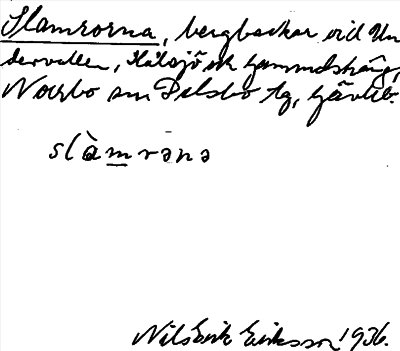 Slamrorna, bergbackar vid Un
dervallen, Hälsjö sk
Norbo sn Delsbo tg, Gävleb.
slàmrənə
Nils Erik Eriksson 1936.